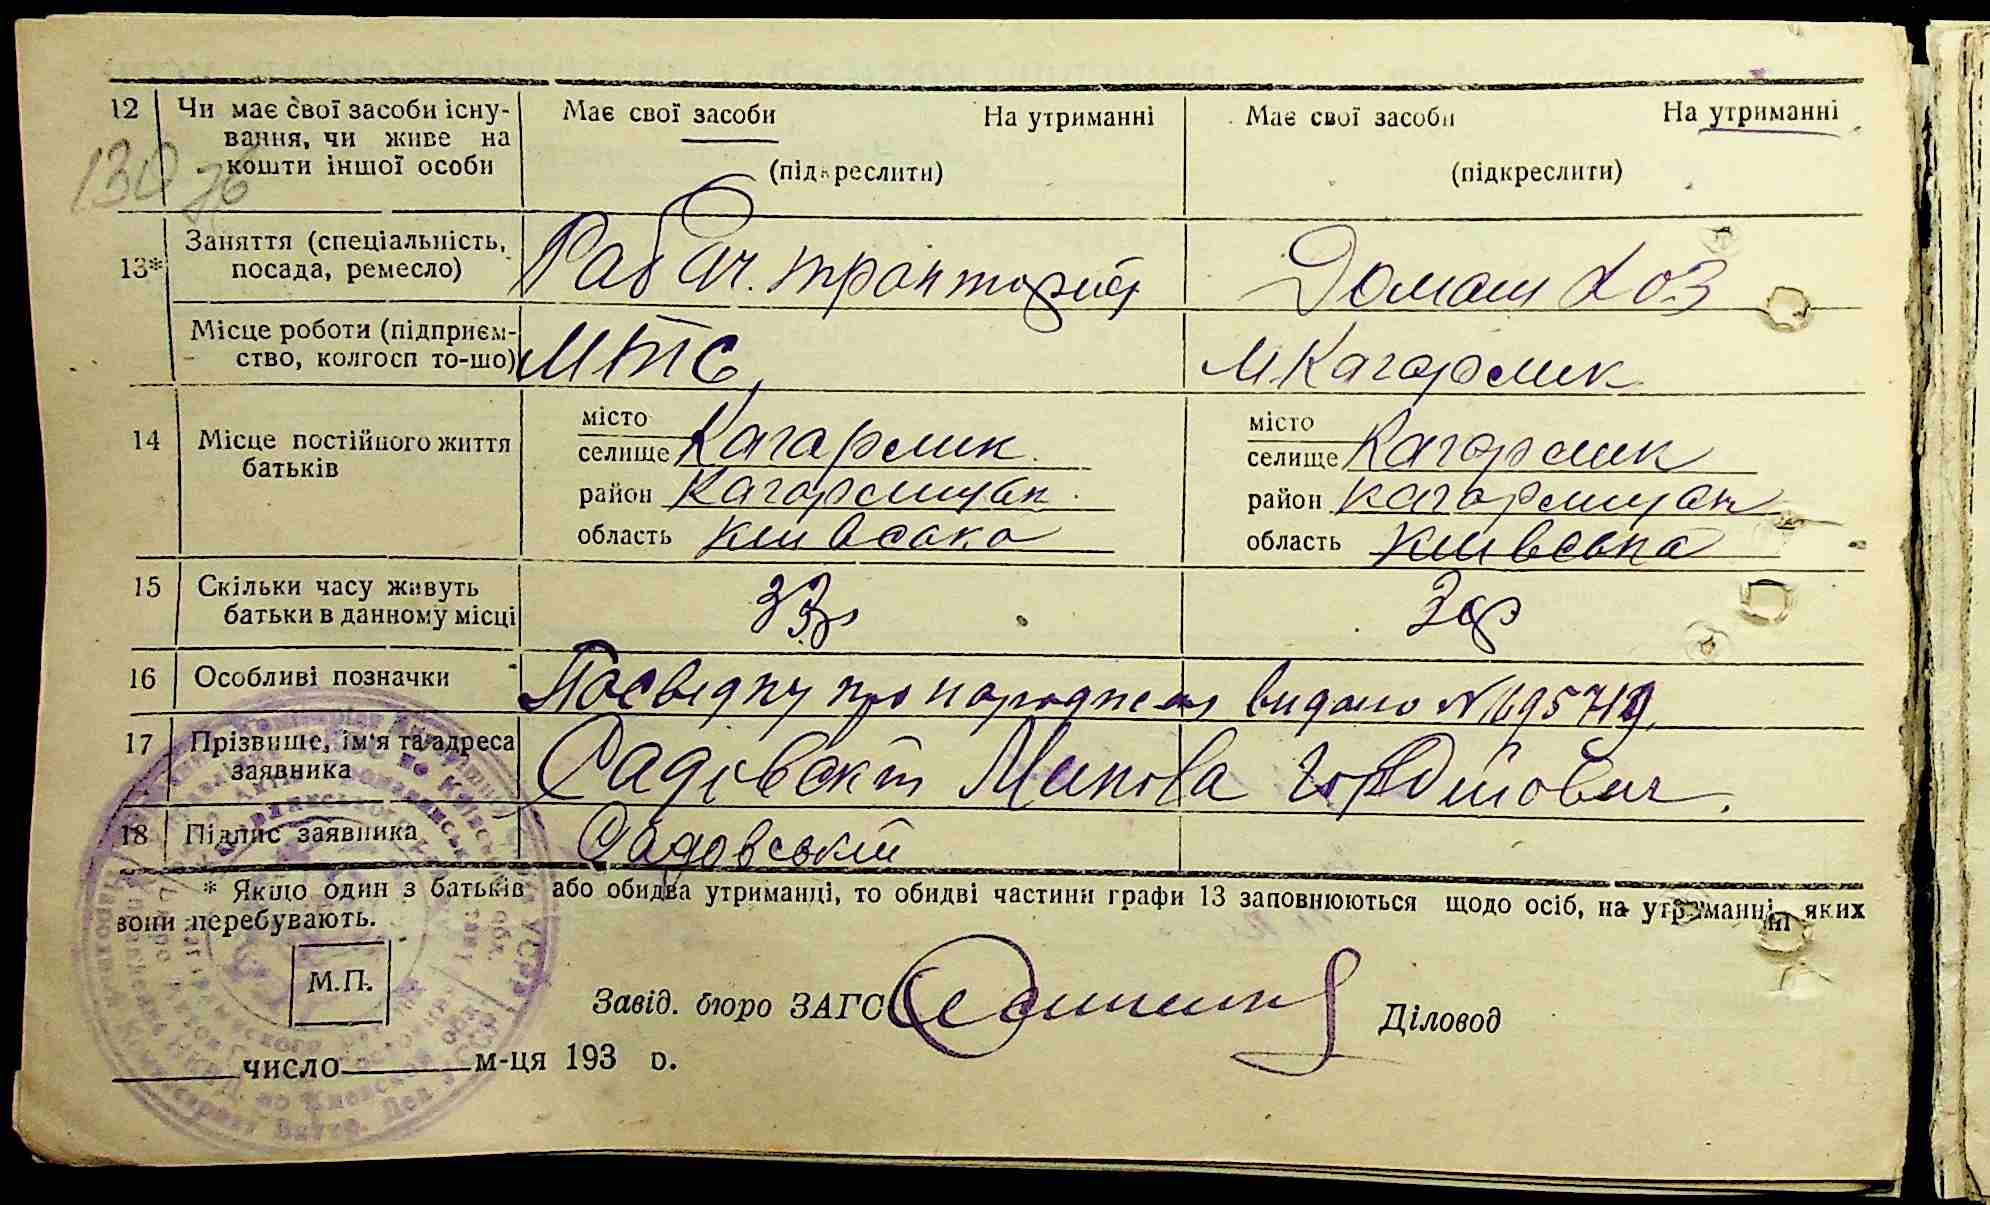 12 Чи має свої засоби існу- Має свої засоби На утриманні Має свої засоби На утриманні
вання, чи живе на
кошти іншої особи (підкреслити) (підкреслити)
130 зб
13* Заняття (спеціальність, посада, ремесло) Раб Оч. тракторист Домаш хоз
Місце роботи (підприєм- МТС, м. Кагарлик
ство, колгосп то-що)
14 Місце постійного життя батьків
місто селище Кагарлик місто селище Кагарлик
район Кагарлицьк район Кагарлицьк
область Київська область Київська
15 Скільки часу живуть 33р 30р
батьки в данному місці
16 Особливі позначки Посвідку про народження видано №
17 Прізвище, ім'я та адреса Садовскі Микола Гордійович.
заявника
18 Підпис заявника Садовський
* Якщо один з батьків або обидва утриманці, то обидві частини графи 13 заповнюються щодо осіб, на утриманні яких
вони перебувають.
М.П.
Завід. бюро ЗАГС Діловод
число м-ця 193 р.